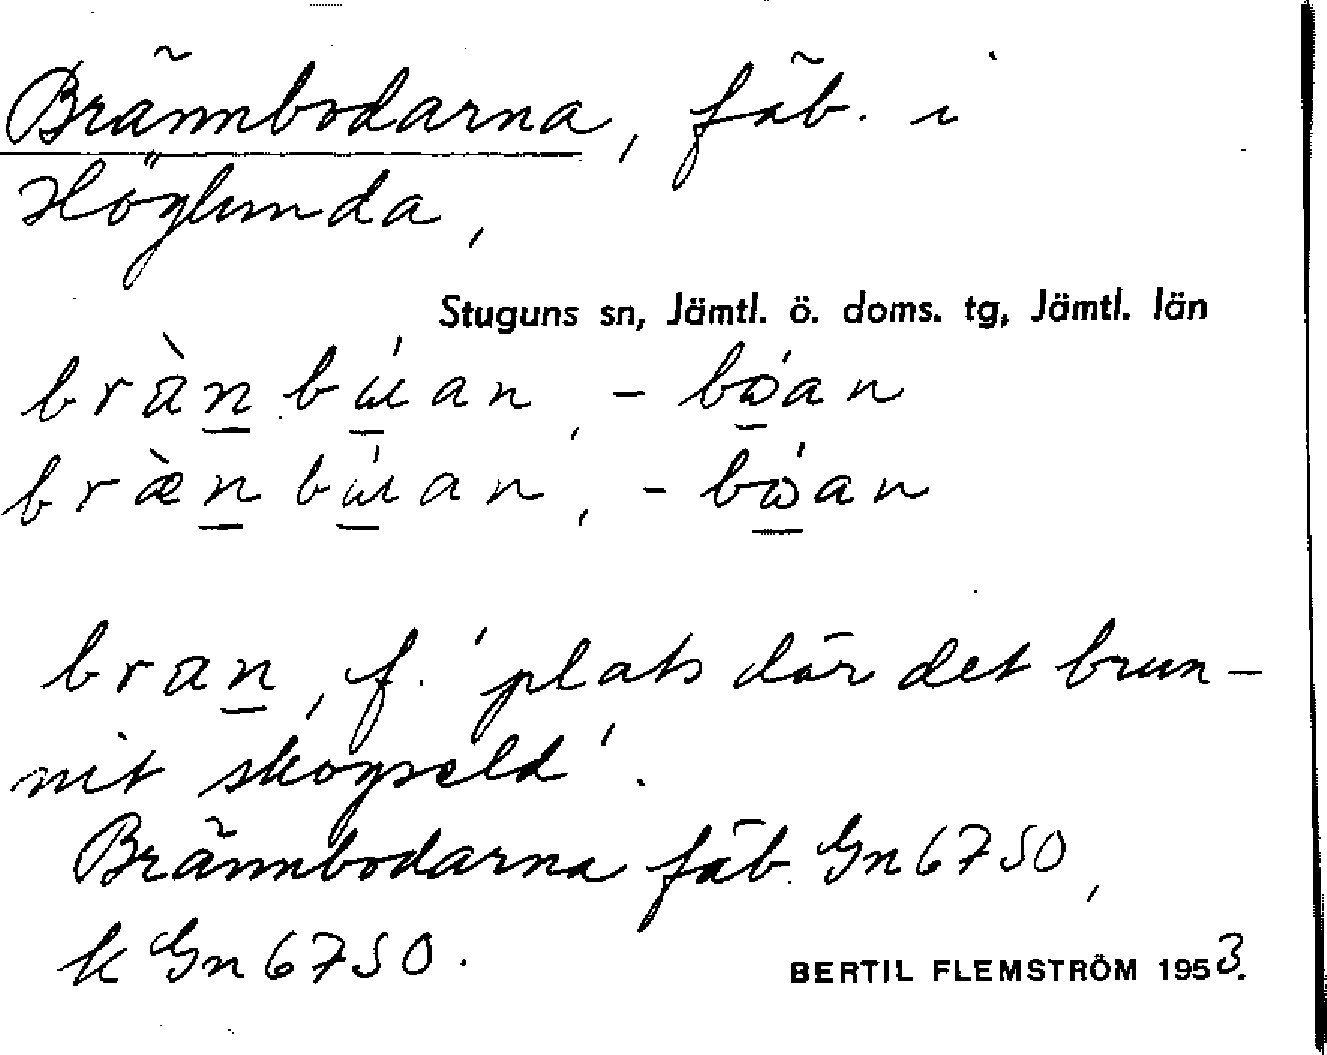 Brännbodarna, fäb. i
Höglunda,
Stuguns sn, Jämtl. ö. doms. tg, Jämtl. län
bràn̲bɯ̲́an, -bώ̲an
bræ̀n̲bɯ̲́an, -bώ̲an
bran̲, f. 'plats där det brun-
nit skogseld'.
Brännbodarna fäb. Gn 6750,
k Gn 6750.
BERTIL FLEMSTRÖM 1953.